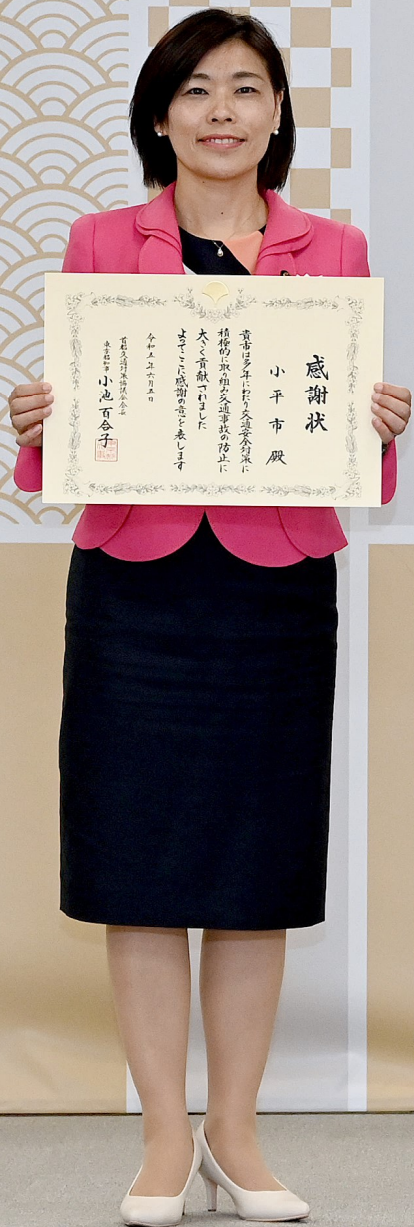 感謝状
小平市殿
貴市は多年にわたり交通安全対策に
積極的に取り組み交通事故の防止に
大きく貢献されました
よってここに感謝の意を表します
令和五年六月五日
首都交通対策協議会会長
東京都知事 小池百合子